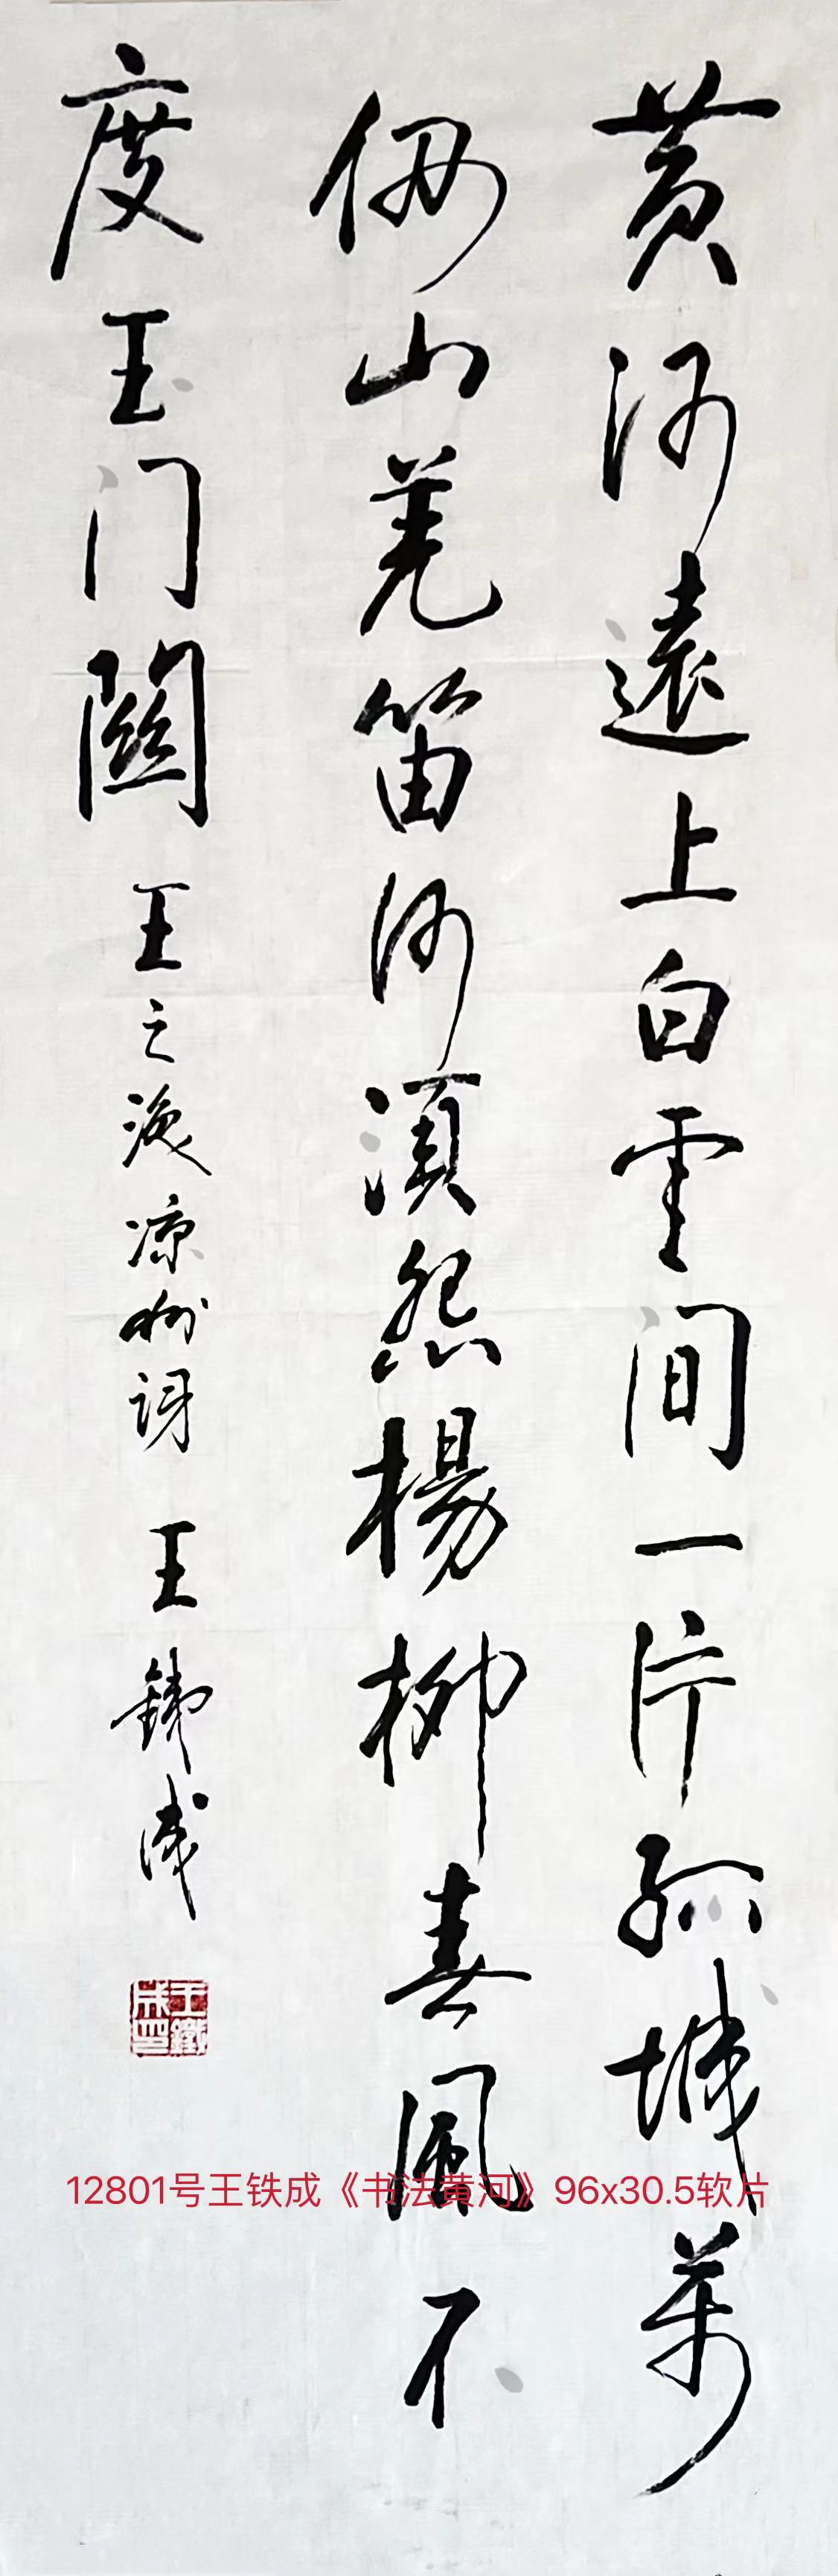 黄河遠上白雲间一片孤城萬
仞山羌笛何須怨楊柳春風不
度玉门關
王之涣凉州词 王鉄成
王鐵成印
12801号王铁成《书法黄河》96x30.5软片